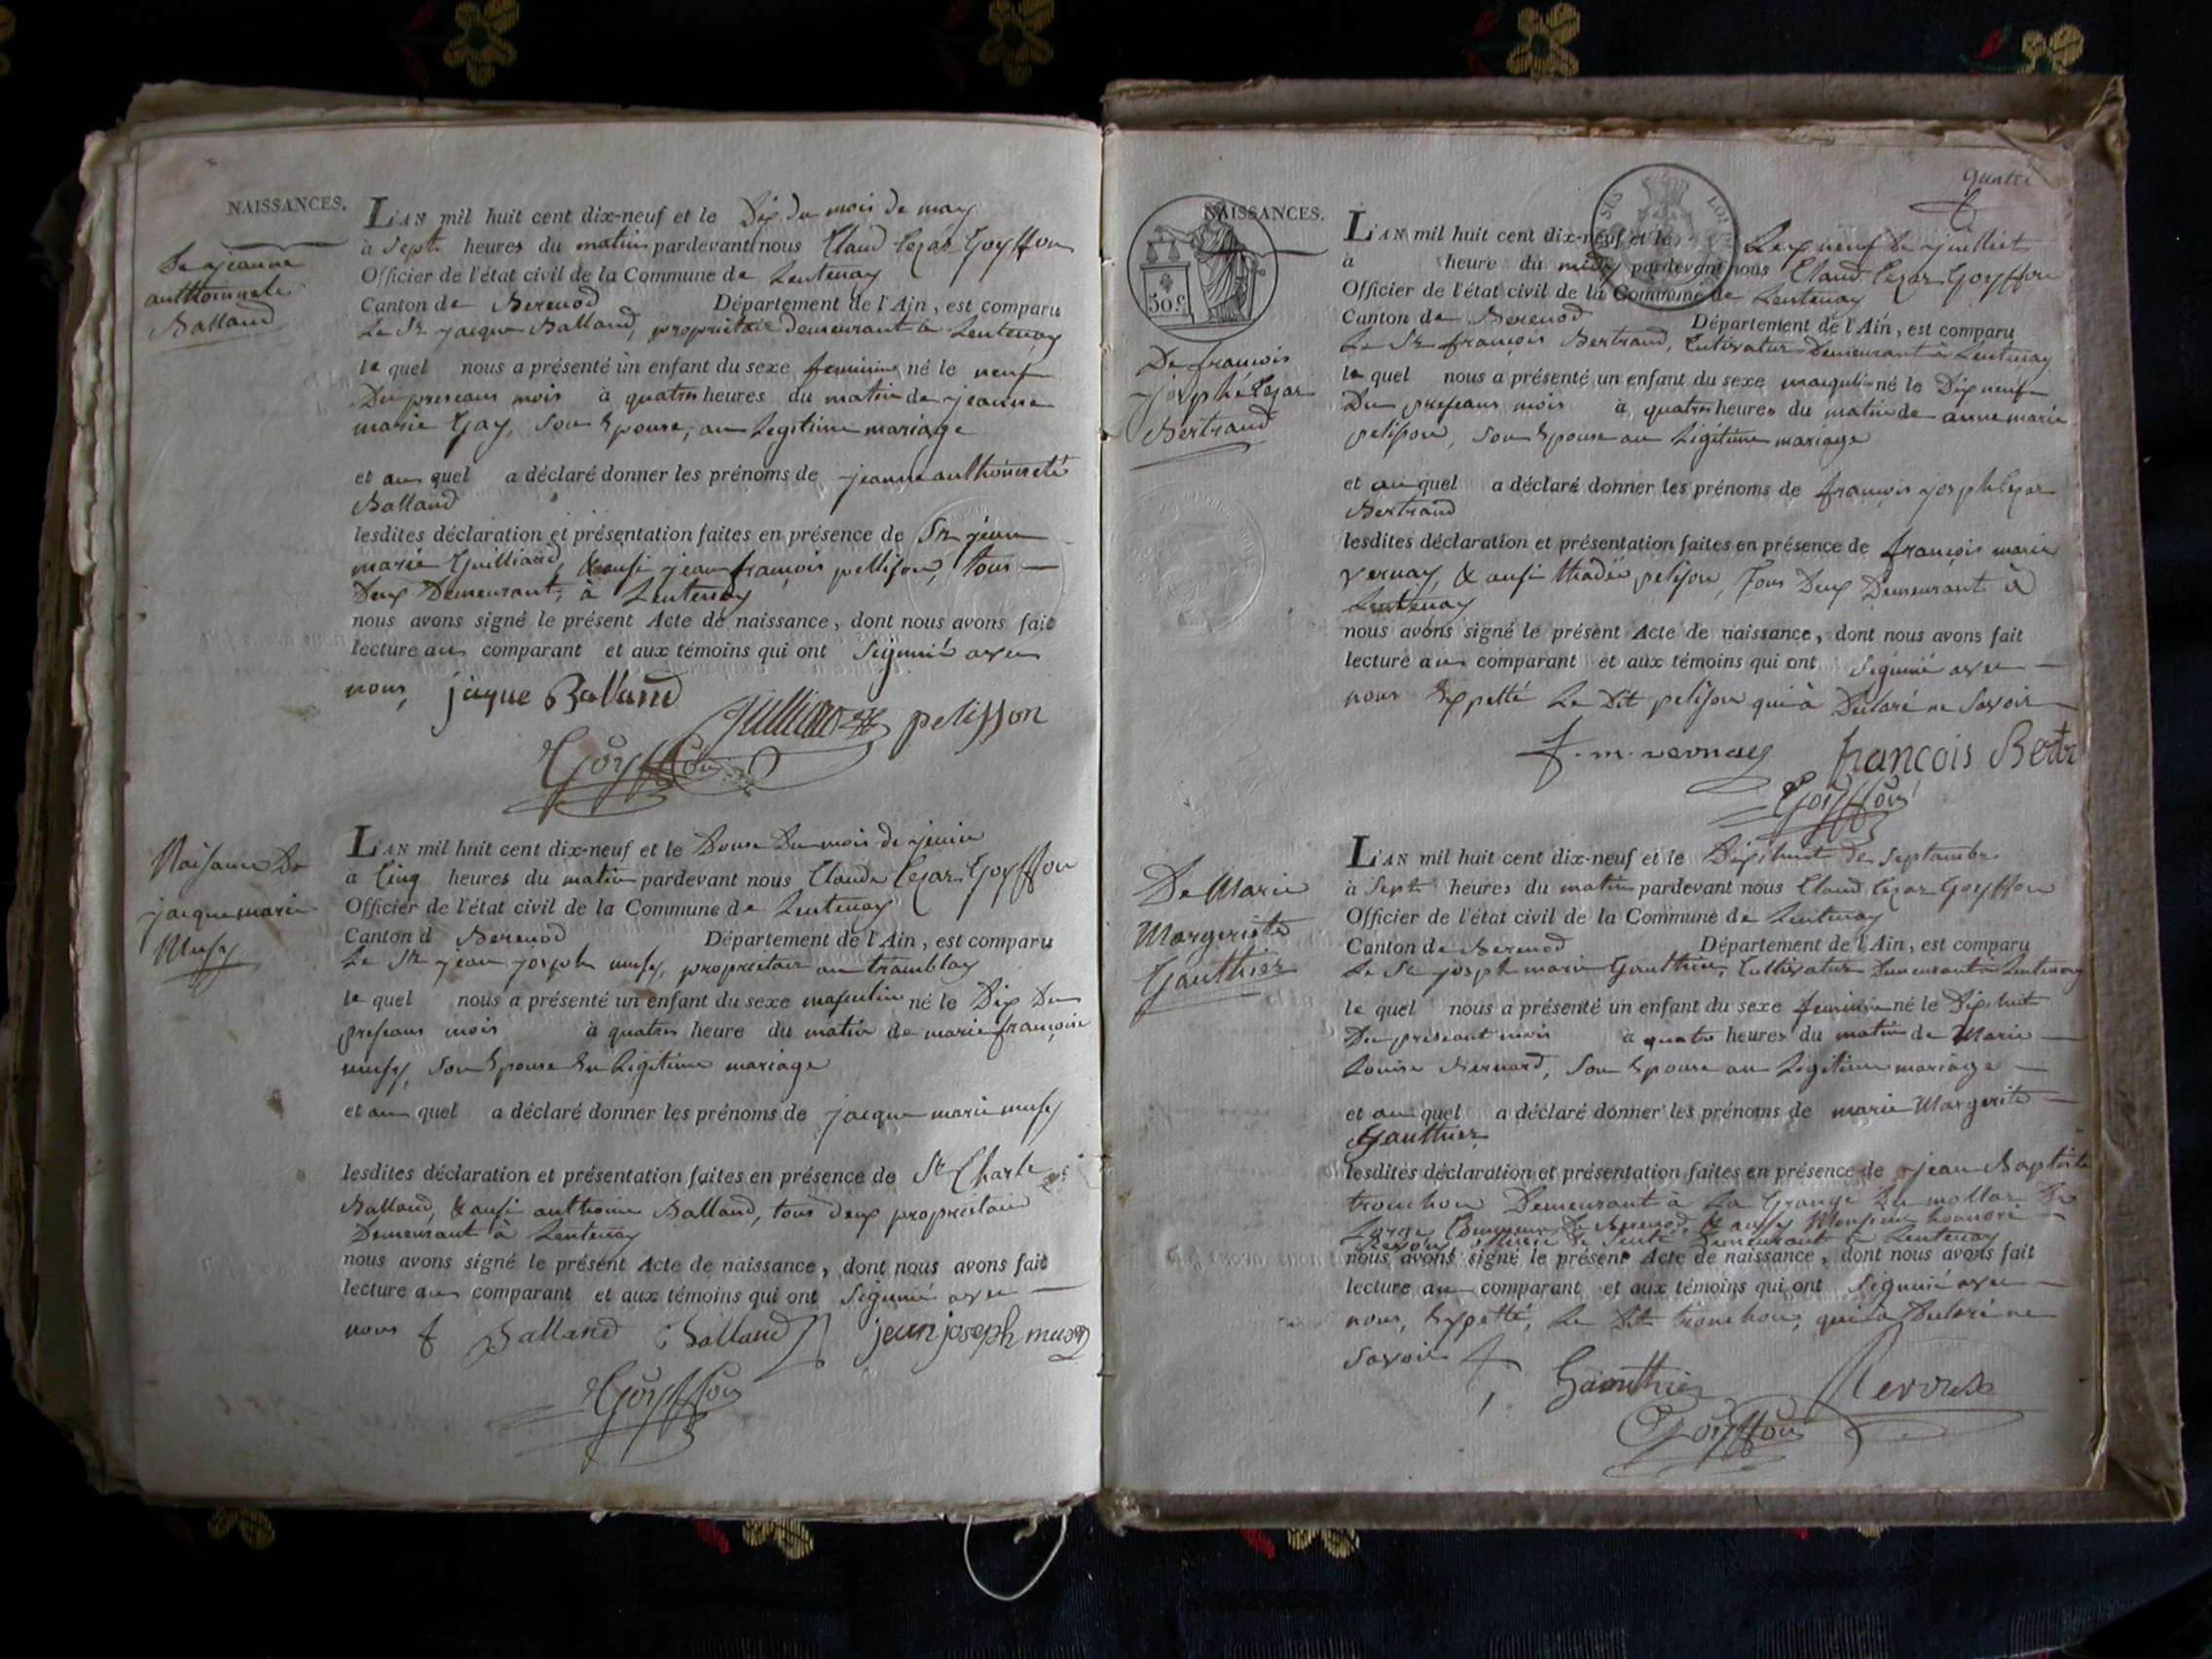 NAISSANCES.
De jeanne
anthoinnete
Balland
L'AN mil huit cent dix-neuf et le Dix du mois de may
à Sept heures du matin pardevant nous Claud Cezar Goyffon
Officier de l'état civil de la Commune de Lentenay
Canton de Berenod Département de l'Ain, est comparu
Le Sr jacque Balland, propriétair demeurant à Lentenay
le quel nous a présenté un enfant du sexe feminin né le neuf
Du preseans mois à quatres heures du matin de jeanne
marie Gay, Son Epouse, au Legitime mariage
et au quel a déclaré donner les prénoms de jeanne anthoinete
Balland
lesdites déclaration et présentation faites en présence de Sr jean
marie Guilliard, & ausi jean françois pellison, tous
Deux Demeurant, à Lentenay
nous avons signé le présent Acte de naissance, dont nous avons fait
lecture au comparant et aux témoins qui ont Signié avec
nous, jaque Balland
pelisson
Goyffon
Naisance De
jacque marie
Musy
L'AN mil huit cent dix-neuf et le Douse Du mois de juin
à Cinq heures du matin pardevant nous Claude Cezar Goyffon
Officier de l'état civil de la Commune de Lentenay
Canton d Berenod Département de l'Ain, est comparu
Le Sr jean joseph musy, propriétair au tramblay
le quel nous a présenté un enfant du sexe masculin né le Dix Du
preseans mois à quatres heure du matin de marie françoise
musy, Son Epouse En Legitime mariage
et au quel a déclaré donner les prénoms de jacque marie musy
lesdites déclaration et présentation faites en présence de Sr Charle
Balland, & ausi anthoine Balland, tous deux propriétair
Demeurant à Lentenay
nous avons signé le présent Acte de naissance, dont nous avons fait
lecture au comparant et aux témoins qui ont Signié avec
nous Balland Balland jean joseph musy
Goyffon
quatre
NAISSANCES.
50 c.
De françois
joseph Cezar
Bertrand
L'AN mil huit cent dix-neuf et le Dix neuf de juilliet
à heure du midy pardevant nous Claud Cezar Goyffon
Officier de l'état civil de la Commune de Lentenay
Canton de Berenod Département de l'Ain, est comparu
Le Sr françois Bertrand, Cultivateur Demeurant à Lentenay
le quel nous a présenté un enfant du sexe masqulin né le Dix neuf
Du preseans mois à quatres heures du matin de anne marie
pelison, Son Epouse au Ligitime mariage
et au quel a déclaré donner les prénoms de françois joseph Cezar
Bertrand
lesdites déclaration et présentation faites en présence de françois marie
vernay, & ausi thadée pelison, Tous Deux Demeurant à
Lentenay
nous avons signé le présent Acte de naissance, dont nous avons fait
lecture au comparant et aux témoins qui ont Signié avec
nous Expetté Le Dit pelison qui à Déclaré ne Savoir
f. m. vernay françois Bertr
Goyffon
De Marie
Margerite
Gauthier
L'AN mil huit cent dix-neuf et le Dix huit de Septambre
à Sept heures du matin pardevant nous Claud Cezar Goyffon
Officier de l'état civil de la Commune de Lentenay
Canton de Berenod Département de l'Ain, est comparu
Le Sr joseph marie Gauthier, Cultivateur Demeurant à Lentenay
le quel nous a présenté un enfant du sexe feminin né le Dix huit
Du preseant mois à quatre heures du matin de Marie
Louise Bernard, Son Epouse au Legitime mariage
et au quel a déclaré donner les prénoms de marie Margerite
Gauthier
lesdites déclaration et présentation faites en présence de jean Baptiste
tronchon Demeurant à La Grange Du mollar De
Lorge Commune De Berenod, & ausi Monsieur
Demeurant à Lentenay
nous avons signé le présent Acte de naissance, dont nous avons fait
lecture au comparant et aux témoins qui ont Signié avec
nous, Expetté, Le Dit tronchon, qui à Déclaré ne
Savoir
Gauthier
Goyffon